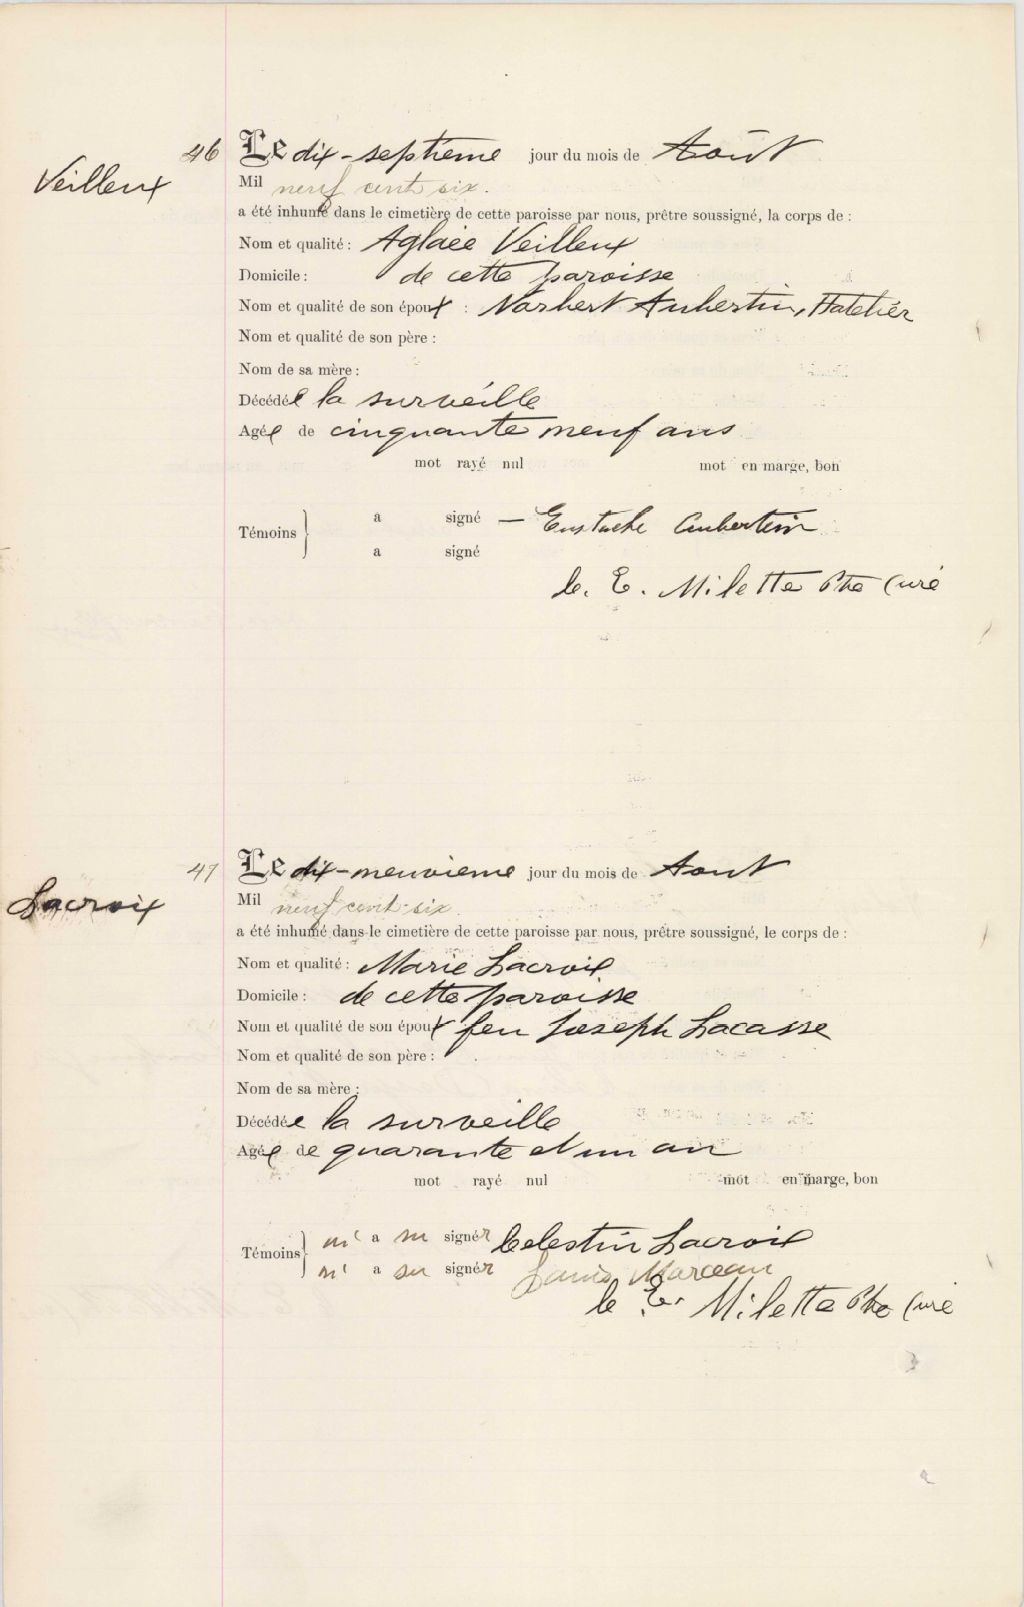 46 Le dix-septième jour du mois de Août
Veilleux
Mil neuf cent six.
a été inhumé dans le cimetière de cette paroisse par nous, prêtre soussigné, la corps de :
Nom et qualité : Aglaée Veilleux
Domicile : de cette paroisse
Nom et qualité de son époux : Norbert Aubertin,
Nom et qualité de son père :
Nom de sa mère :
Décédée la surveille
Agée de cinquante neuf ans
mot rayé nul mot en marge, bon
a signé — Eustache Aubertin
Témoins
a signé
C. E. Milette Ptre Curé
47 Le dix-neuvième jour du mois de Août
Lacroix
Mil neuf cent-six
a été inhumé dans le cimetière de cette paroisse par nous, prêtre soussigné, le corps de :
Nom et qualité : Marie Lacroix
Domicile : de cette paroisse
Nom et qualité de son époux feu Joseph Lacasse
Nom et qualité de son père :
Nom de sa mère :
Décédée la surveille
Agée de quarante et un an
mot rayé nul mot en marge, bon
n' a su signer Celestin Lacroix
Témoins
n' a su signer Louis Marceau
C. E. Milette Ptre Curé